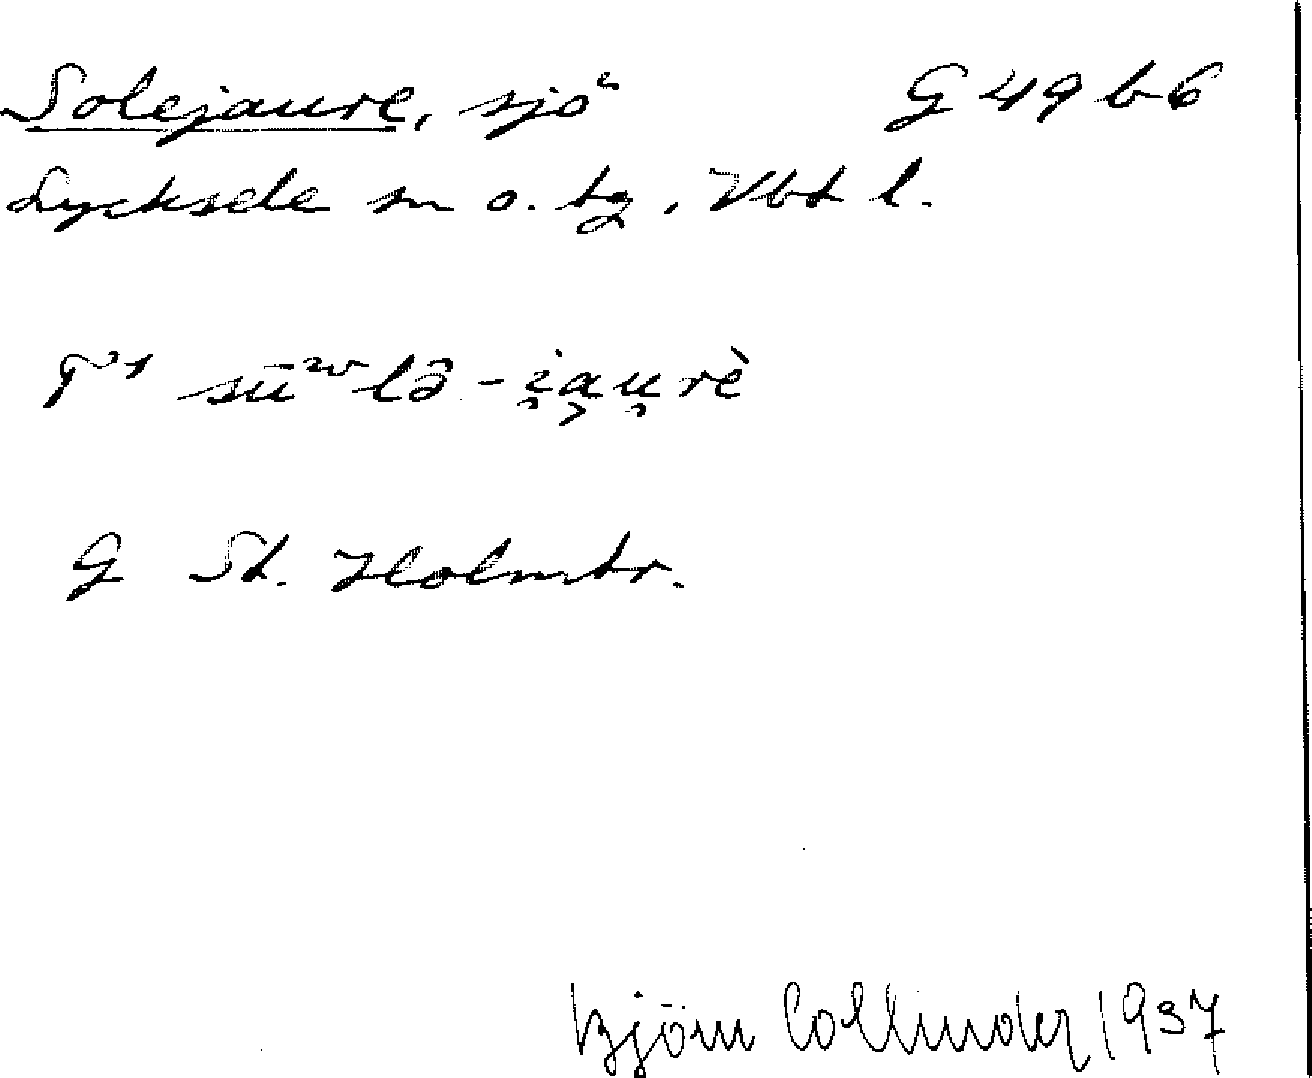 Solejaure, sjö G 49 b 6
Lycksele sn o. tg, Vbt l.
sūʷlə̄ -i̯au̯rè
G St. Holmbr.
Björn Collinder 1937